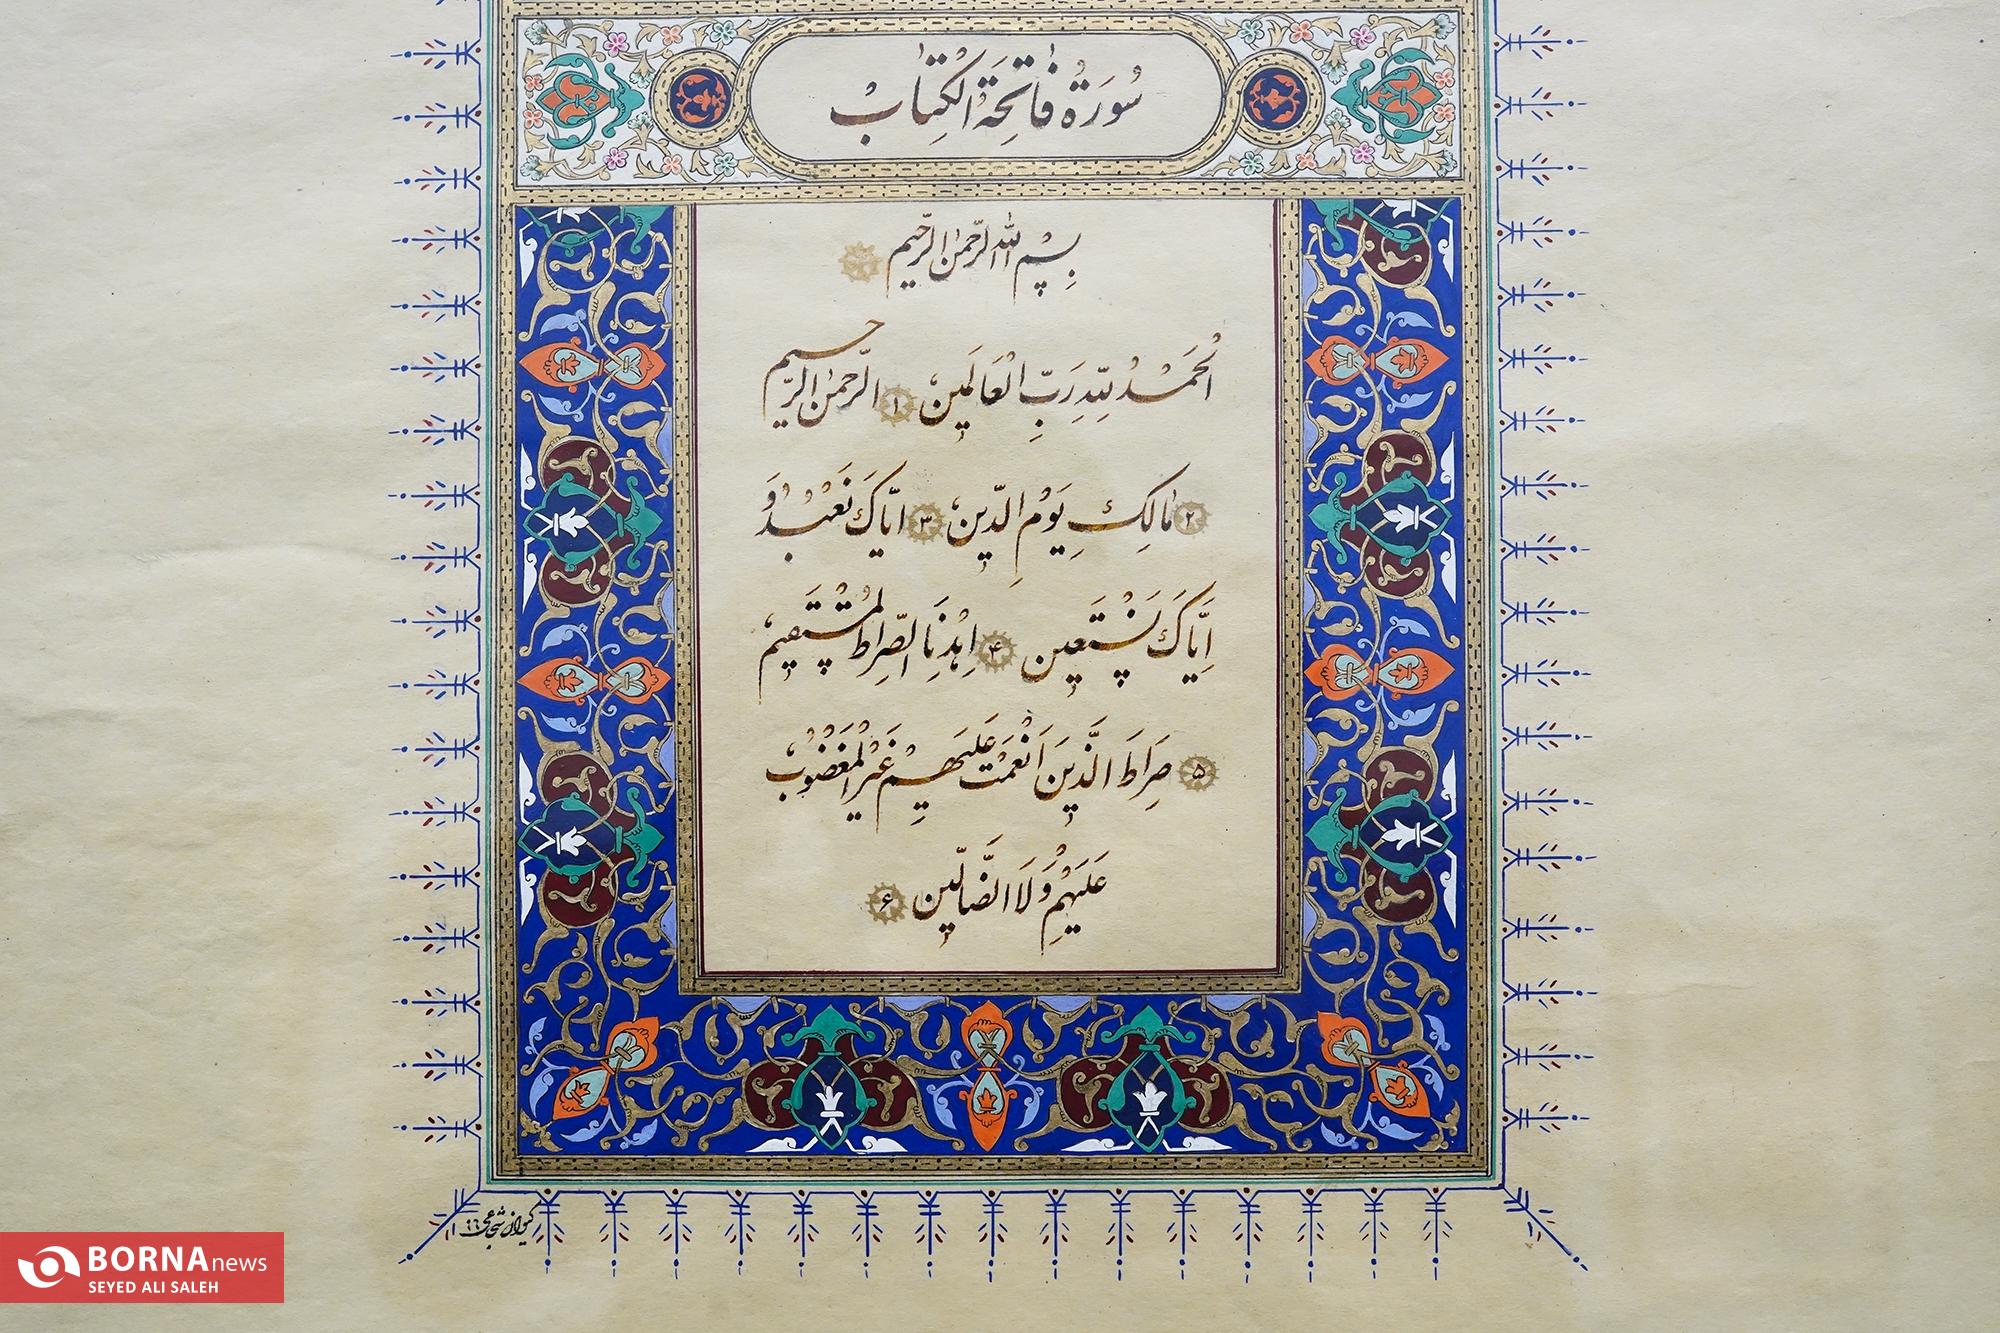 سُورَةُ فٰاتِحَةِ الْكِتٰابْ
بِسْمِ اللهِ الرَّحْمٰنِ الرَّحيم
الْحَمْدُ لِلّٰهِ رَبِّ الْعَالَمين ۱ الرَّحمٰنِ الرَّحيم
۲ مٰالِكِ يَوْمِ الدّين ۳ ايّاكَ نَعْبُدُ وَ
اِيّاكَ نَسْتَعين ۴ اِهْدِنَا الصِّراطَ المُسْتَقيم
۵ صِرَاطَ الَّذينَ اَنْعَمْتَ عَلَيهِمْ غَيْرِ الْمَغْضُوبْ
عَلَيْهِمْ وَلَا الضَّالّين ۶
كیوان شجاعی
BORNA news
SEYED ALI SALEH